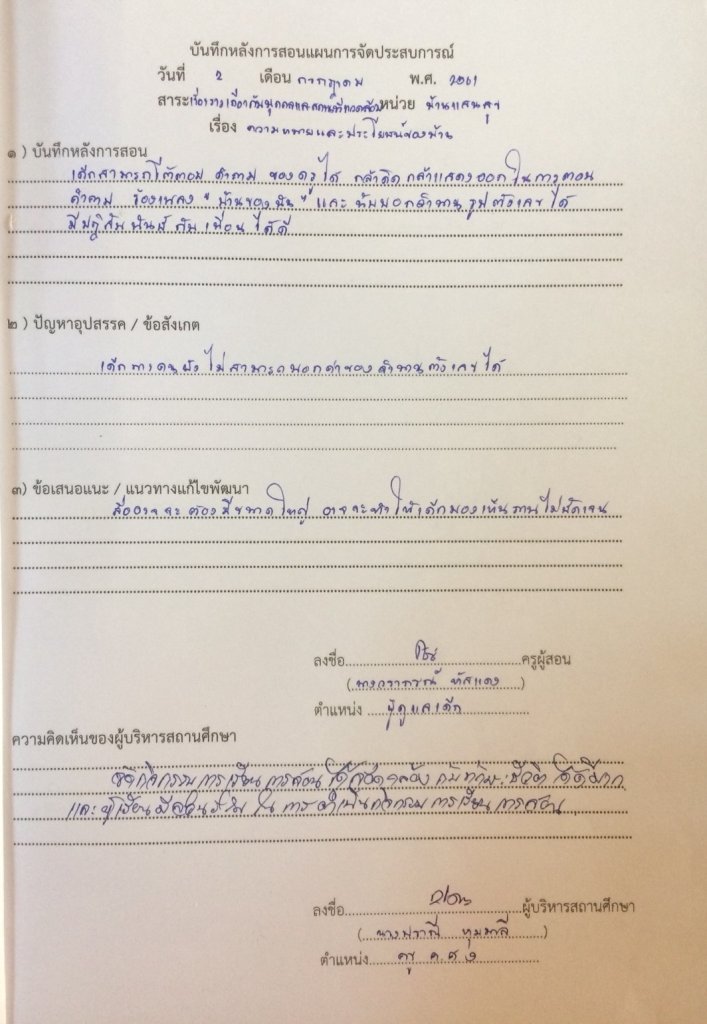 บันทึกหลังการสอนแผนการจัดประสบการณ์
วันที่ 2 เดือน กรกฎาคม พ.ศ. 2561
สาระเรื่องราวเกี่ยวกับบุคคลและสถานที่แวดล้อม หน่วย บ้านแสนสุข
เรื่อง ความหมายและประโยชน์ของบ้าน
๑ ) บันทึกหลังการสอน
เด็กสามารถโต้ตอบ คำถาม ของครูได้ กล้าคิด กล้าแสดงออก ในการตอบ
คำถาม ร้องเพลง "บ้านของฉัน" และ นับบอกจำนวน รูป ตัวเลข ได้
มีปฏิสัมพันธ์ กับ เพื่อน ได้ดี
๒ ) ปัญหาอุปสรรค / ข้อสังเกต
เด็กบางคนยัง ไม่ สามารถ บอกค่าของ จำนวน ตัวเลข ได้
๓) ข้อเสนอแนะ / แนวทางแก้ไขพัฒนา
สื่ออาจจะ ต้องมีขนาด ใหญ่ อาจจะทำให้เด็กมองเห็น ไม่ชัดเจน
ลงชื่อ ครูผู้สอน
(นางวราภรณ์ )
ตำแหน่ง ผู้ดูแลเด็ก
ความคิดเห็นของผู้บริหารสถานศึกษา
จัดกิจกรรม การเรียน การสอน ได้สอดคล้อง กับ ทักษะชีวิต ได้ดีมาก
และ ผู้เรียน มีส่วนร่วม ใน การ ดำเนินกิจกรรม การเรียน การสอน
ลงชื่อ ผู้บริหารสถานศึกษา
(นางปราณี )
ตำแหน่ง ครู ค.ศ.